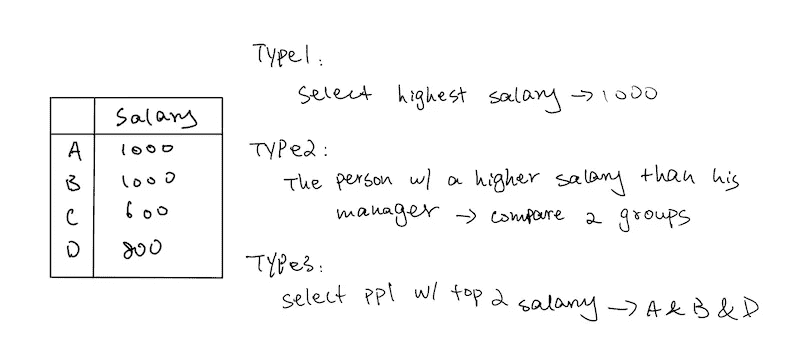 Salary
A 1000
B 1000
C 600
D 800
Type1:
Select highest salary → 1000
Type2:
The person w/ a higher salary than his
manager → compare 2 groups
Type3:
Select ppl w/ top 2 salary → A & B & D